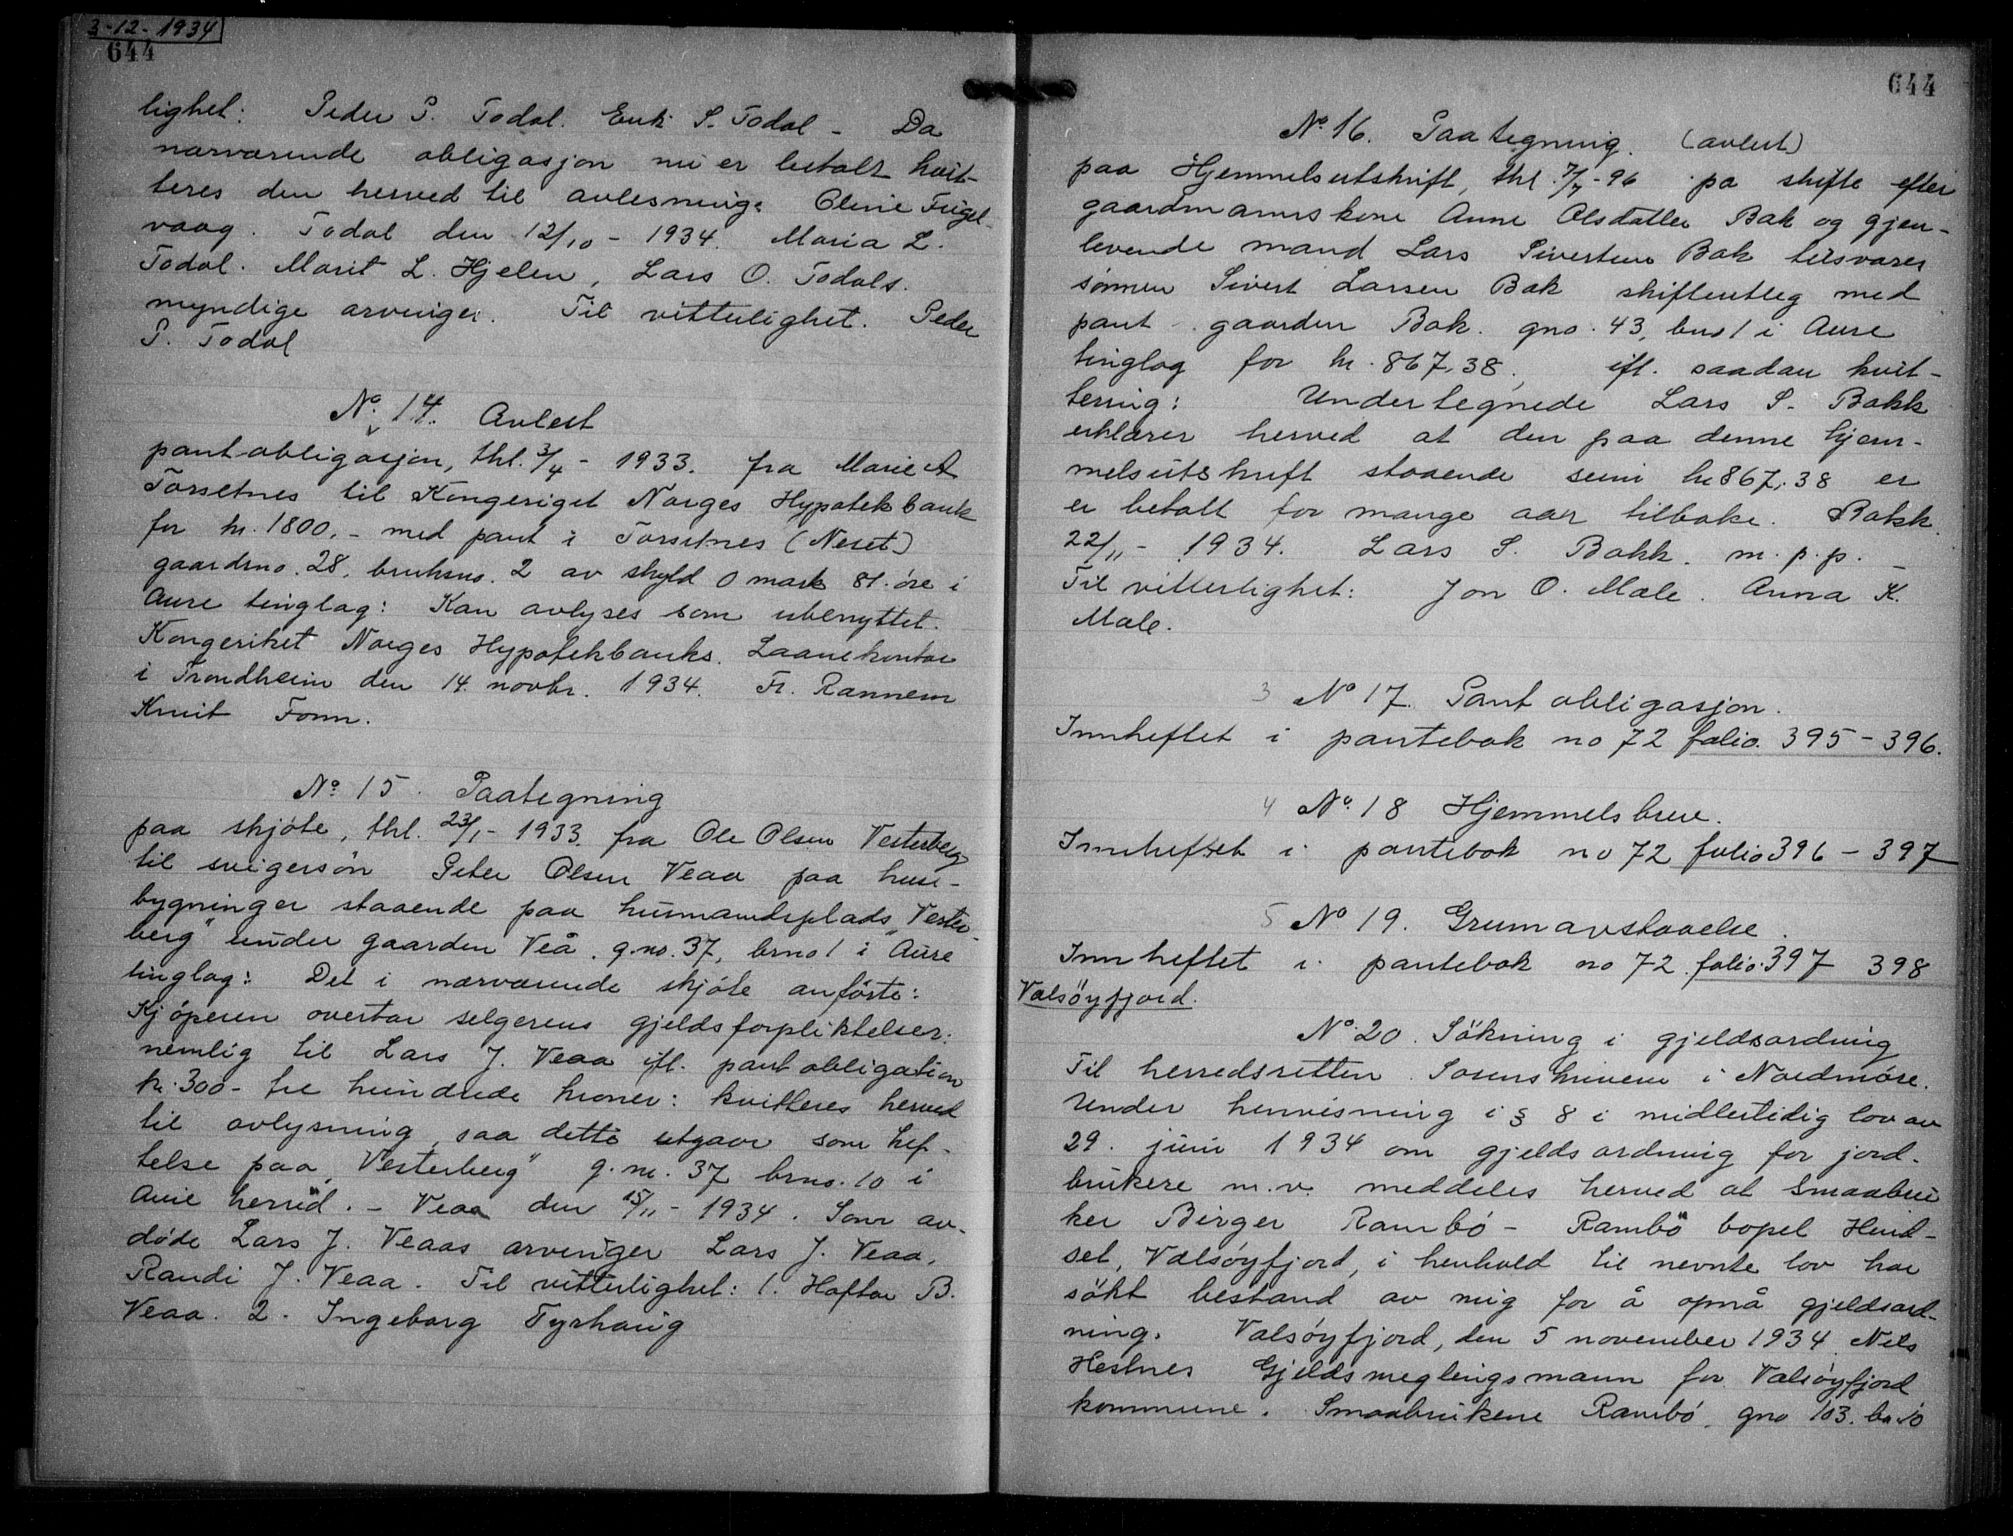 3-12-1934
644
lighet: Peder P. Todal. Erik S. Todal - Da
nærværende obligasjon nu er betalt kvit-
teres den herved til avlesning: Oline Fugel-
vaag. Todal den 12/10 - 1934. Maria L.
Todal. Marit L. Hjelen, Lars O. Todals.
myndige arvinger. Til vitterlighet. Peder
P. Todal
No. 14. Avlest
pantobligasjon, thl. 3/4 - 1933. fra Marie A
Torsetnes til Kongeriget Norges Hypotekbank
for kr. 1800.- med pant i Torsetnes (Neset)
gaardsno. 28, bruksno. 2 av skyld 0 mark 81 øre i
Aure tinglag: Kan avlyses som ubenyttet.
Kongeriket Norges Hypotekbanks. Laanekontor
i Trondheim den 14. novbr. 1934. Fr. Rannem
Knut Fonn.
No. 15. Paategning
paa skjøte, thl. 23/1 - 1933. fra Ole Olsen Vesterberg
til svigersøn Peter Olsen Veaa paa huse-
bygninger staaende paa husmandsplads „Vester-
berg" under gaarden Veå. g.no. 37, brno 1 i Aure
tinglag: Det i nærværende skjøte anførte:
Kjøperen overtar selgerens gjeldsforpliktelser:
nemlig til Lars J. Veaa ifl. pantobligation
kr. 300 - tre hundrede kroner: kvitteres herved
til avlysning, saa dette utgaar som hef-
telse paa „Vesterberg" g.nr. 37 brno. 10 i
Aure herred. - Veaa den 15/11 - 1934. Som av-
døde Lars J. Veaas arvinger Lars J. Veaa,
Randi J. Veaa. Til vitterlighet: 1. Haftor B.
Veaa. 2. Ingeborg Tyrhaug
644
No. 16. Paategning. (avlest)
paa Hjemmelsutskrift, thl. 7/7 - 96 pa skifte efter
gaardmannskone Anne Olsdatter Bak og gjen-
levende mand Lars Sivertsen Bak tilsvarer
sønnen Sivert Larsen Bak skifteutleg med
pant gaarden Bak. gno. 43, bno 1 i Aure
tinglag for kr. 867,38, ifl. saadan kvit-
tering: Undertegnede Lars S. Bakk
erklærer herved at den paa denne hjem-
melsutskrift staaende sum kr 867,38 er
er betalt for mange aar tilbake. Bakk
22/11 - 1934. Lars S. Bakk. m. p. p. -
Til vitterlighet: Jon O. Mæle. Anna K.
Mæle.
3 No 17. Pantobligasjon.
Innheftet i pantebok no 72 folio. 395 - 396.
4 No. 18 Hjemmelsbrev.
Innheftet i pantebok no 72 folio 396 - 397
5 No 19. Grunnavstaaelse.
Innheftet i pantebok no 72 folio. 397 398
Valsöyfjord.
No. 20. Sökning i gjeldsordning
Til herredsretten Sorenskriveren i Nordmøre.
Under henvisning i § 8 i midlertidig lov av
29. juni 1934 om gjeldsordning for jord-
brukere m.v. meddeles herved at Smaabru
ker Birger Rambö - Rambö bopel Hend-
set, Valsöyfjord, i henhold til nevnte lov har
søkt bestand av mig for å opnå gjeldsord-
ning. Valsöyfjord, den 5 november 1934 Nils
Hestnes Gjeldsmeglingsmann for Valsöyfjord
kommune. Smaabrukene Rambö, gno 103. bn 10